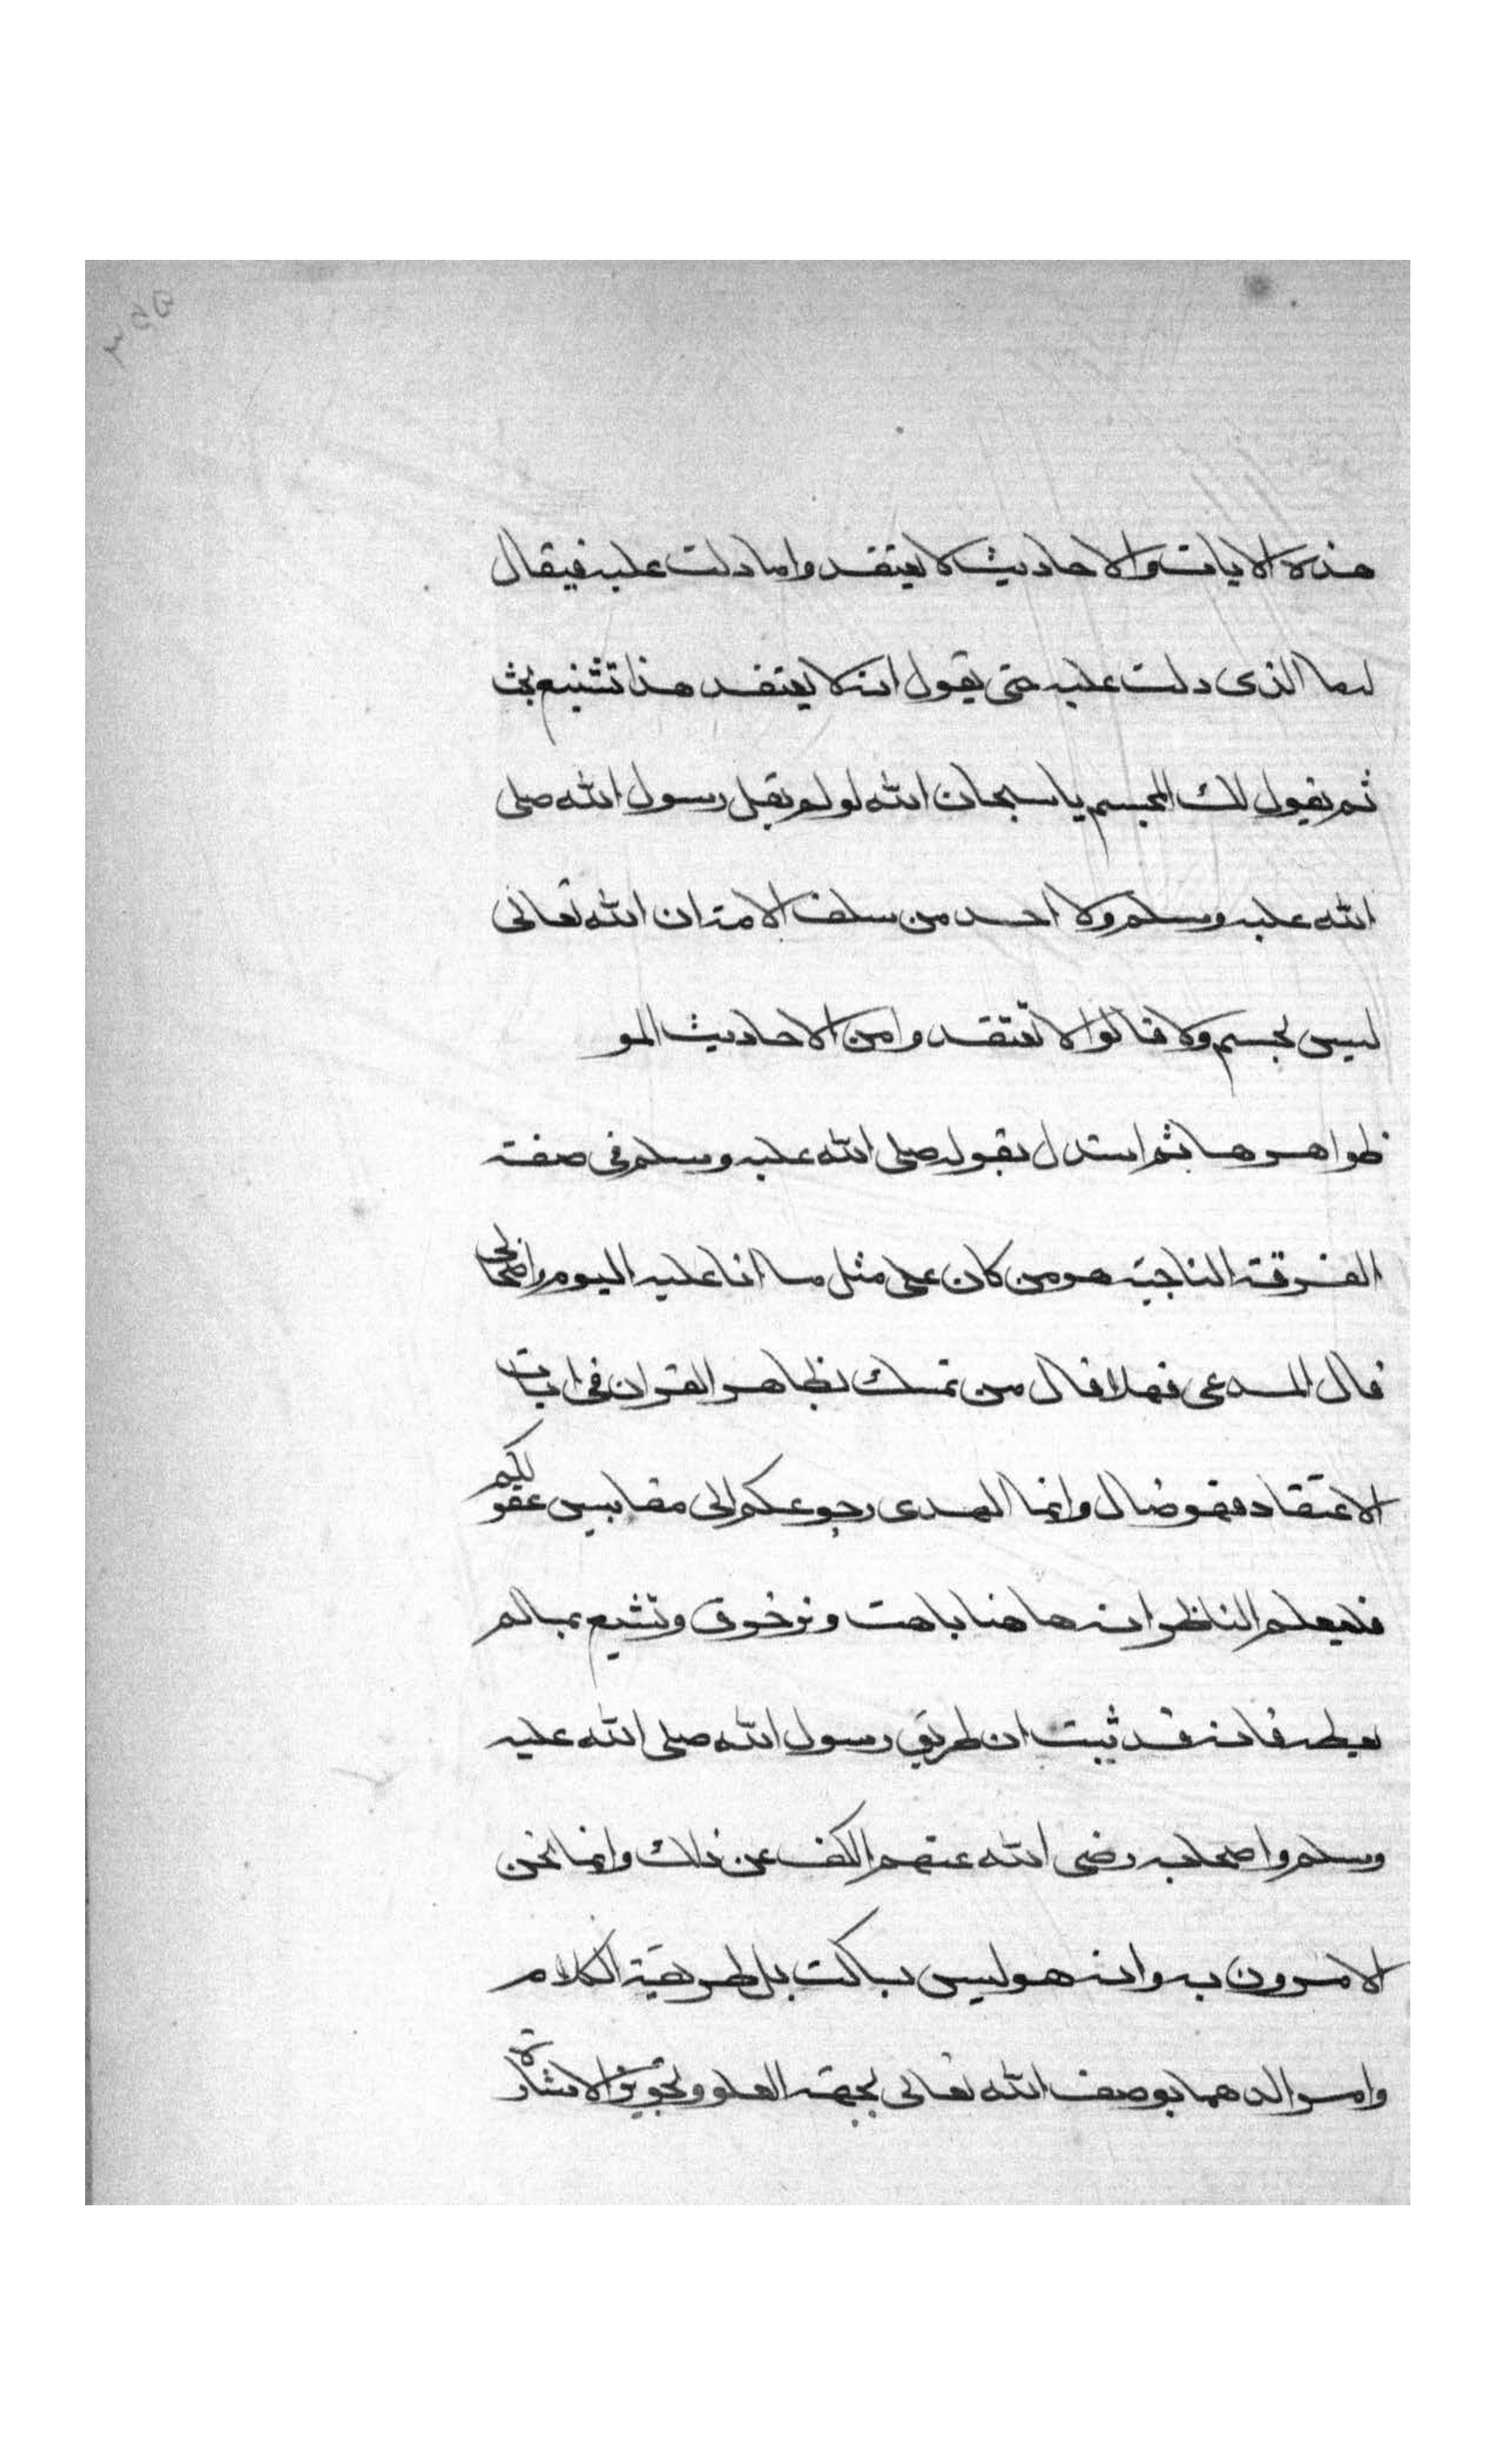 هذه الايات والاحاديث لا يعتقدوا ما دلت عليه فيقال
لها الذى دلت عليه حتى يقول انه لا يعتقد هذا تشنيع بحث
ثم يقول لك المجسم يا سبحان الله لو لم يقل رسول الله صلى
الله عليه وسلم ولا احد من سلف الامة ان الله تعالى
ليس بجسم ولا قالوا لا تعتقدوا من الاحاديث المو
ظواهرها ثم استدل بقوله صلى الله عليه وسلم فى صفة
الفرقة الناجية هو من كان على مثل ما انا عليه اليوم واصحابى
قال المدعى فهلا قال من تمسك بظاهر القران فى ايات
الاعتقاد فهو ضال وانما الهدى رجوعكم الى مقاييس عقولكم
فليعلم الناظر انه هاهنا باهت وزخرف وتشبع بما لم
يعطه فانه قد ثبت ان طريق رسول الله صلى الله عليه
وسلم واصحابه رضى الله عنهم الكف عن ذلك وانما نحن
الامرون به وانه هو ليس بساكت بل طريقة الكلام
وامر الدهما بوصف الله تعالى بجهة العلو وتجويز الاشارة